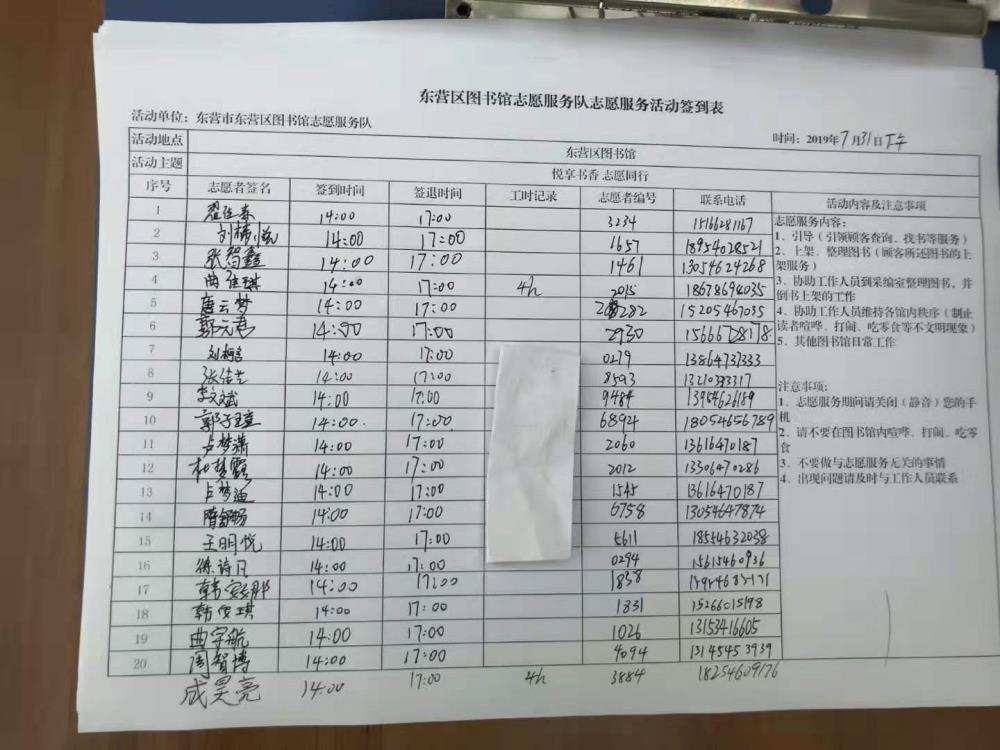 东营区图书馆志愿服务队志愿服务活动签到表
活动单位：东营市东营区图书馆志愿服务队
时间：2019年7月31日下午
活动地点 东营区图书馆
活动主题 悦享书香 志愿同行
序号 志愿者签名 签到时间 签退时间 工时记录 志愿者编号 联系电话 活动内容及注意事项
1 14:00 17:00 3234 15166281167
2 14:00 17:00 1657 18954028521
3 张智鑫 14:00 17:00 1461 13054624268
4 曲维琪 14:00 17:00 4h 2015 18678694035
5 唐云梦 14:00 17:00 15205467035
6 郭元 14:00 17:00 2930 15666728178
7 刘 14:00 17:00 0279 13864737333
8 张佳 14:00 17:00 8593 13210333317
9 李文斌 14:00 17:00 9484 13954626189
10 郭子 14:00 17:00 6894 18054656789
11 卢梦潇 14:00 17:00 2060 13616470187
12 梦露 14:00 17:00 2012 13306470286
13 卢梦迪 14:00 17:00 1545 13616470187
14 隋舒畅 14:00 17:00 6758 13054647874
15 王明悦 14:00 17:00 5611 18554632038
16 徐诗 14:00 17:00 0294 15615460936
17 韩 14:00 17:00 1838
18 韩 琪 14:00 17:00 1831 15266015198
19 曲宇航 14:00 17:00 1026 13153416605
20 周智博 14:00 17:00 4094 13145453939
成昊亮 14:00 17:00 4h 3884 18254609176
志愿服务内容：
1、引导（引领顾客查询、找书等服务）
2、上架、整理图书（顾客所还图书的上
架服务）
3、协助工作人员到采编室整理图书，并
倒书上架的工作
4、协助工作人员维持各馆内秩序（制止
读者喧哗、打闹、吃零食等不文明现象）
5、其他图书馆日常工作
注意事项：
1、志愿服务期间请关闭（静音）您的手
机
2、请不要在图书馆内喧哗、打闹、吃零
食
3、不要做与志愿服务无关的事情
4、出现问题请及时与工作人员联系